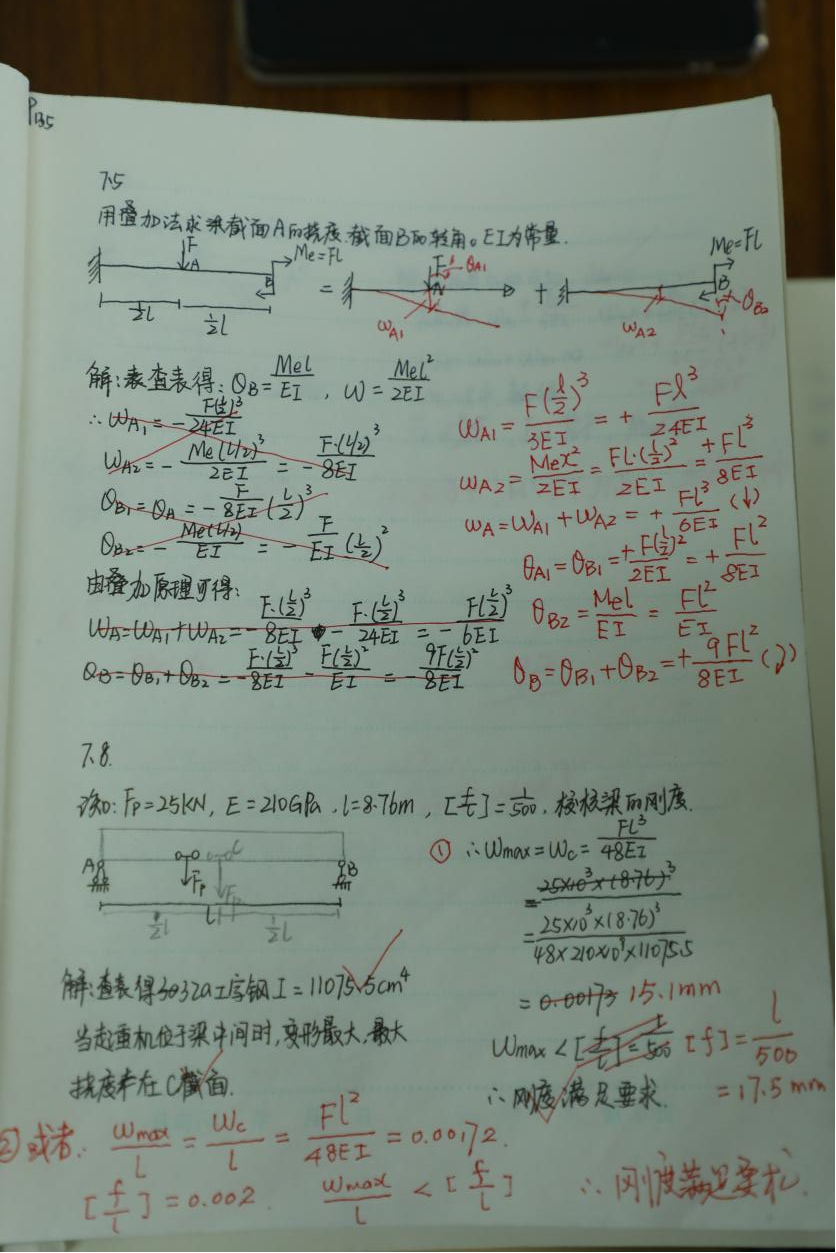 P135
7.5
用叠加法求梁截面A的挠度.截面B的转角。EI为常量.
F A Me=Fl B = F θA1 A ωA1 + Me=Fl B θB2 ωA2
½l ½l
解:表查表得: θB=Mel/EI , ω=Mel²/2EI
∴ωA1=-F(½)³/24EI
ωA2=-Me(L/2)³/2EI=-F·(L/2)³/8EI
θB1=θA=-F/8EI(L/2)³
θB2=-Me(L/2)/EI=-F/EI(L/2)²
由叠加原理可得:
ωA=ωA1+ωA2=-F·(L/2)³/8EI-F·(L/2)³/24EI=-F(L/2)³/6EI
θB=θB1+θB2=-F·(L/2)³/8EI-F(L/2)²/EI=-9F(L/2)²/8EI
ωA1=F(l/2)³/3EI=+Fl³/24EI
ωA2=Mex²/2EI=Fl·(l/2)²/2EI=+Fl³/8EI
ωA=ωA1+ωA2=+Fl³/6EI(↓)
θA1=θB1=+F(l/2)²/2EI=+Fl²/8EI
θB2=Mel/EI=Fl²/EI
θB=θB1+θB2=+9Fl²/8EI(↓)
7.8.
已知: Fp=25KN, E=210GPa, l=8.76m, [f/l]=1/500, 校核梁的刚度.
A C B Fp Fp
½l L ½l
解:查表得32a工字钢 I=11075.5cm⁴
当起重机位于梁中间时,变形最大,最大
挠度在C截面.
① ∴ωmax=ωC=Fl³/48EI
=25×10³×(8.76)³
=25×10³×(8.76)³/48×210×10⁹×11075.5
=0.00173 15.1mm
ωmax<[f/l]=l/500 [f]=l/500
∴刚度满足要求. =17.5mm
②或者: ωmax/l=ωC/l=Fl²/48EI=0.00172.
[f/l]=0.002. ωmax/l<[f/l] ∴刚度满足要求.